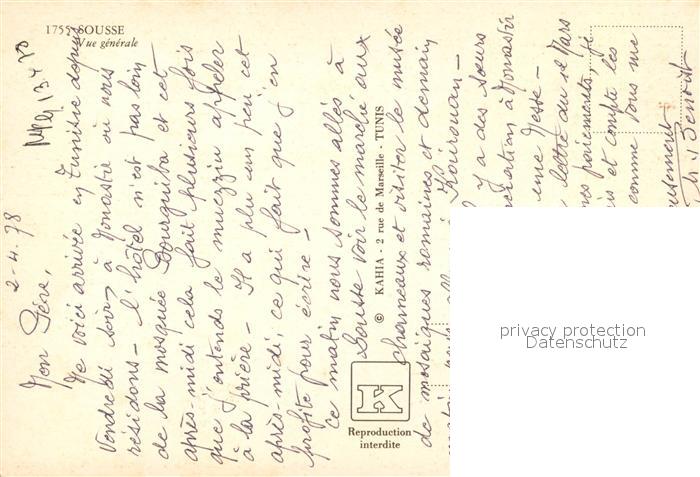 1755 SOUSSE
Vue générale
2-4.78
Mon Père,
Me voici arrivée en Tunisie depuis
vendredi soir, à Monastir où nous
résidons - l'hôtel n'est pas loin
de la mosquée Bourguiba et cet
après-midi cela fait plusieurs fois
que j'entends le muezzin appeler
à la prière - Il a plu un peu cet
après-midi, ce qui fait que j'en
profite pour écrire -
Ce matin nous sommes allés à
Sousse voir le marché aux
chameaux et visiter le musée
de mosaïques romaines et demain
Kairouan -
Il y a des sœurs
à Monastir
Messe -
lettre du 12 Mars
paiements, je
et compte les
comme vous me
© KAHIA - 2 rue de Marseille - TUNIS
K
Reproduction
interdite
privacy protection
Datenschutz